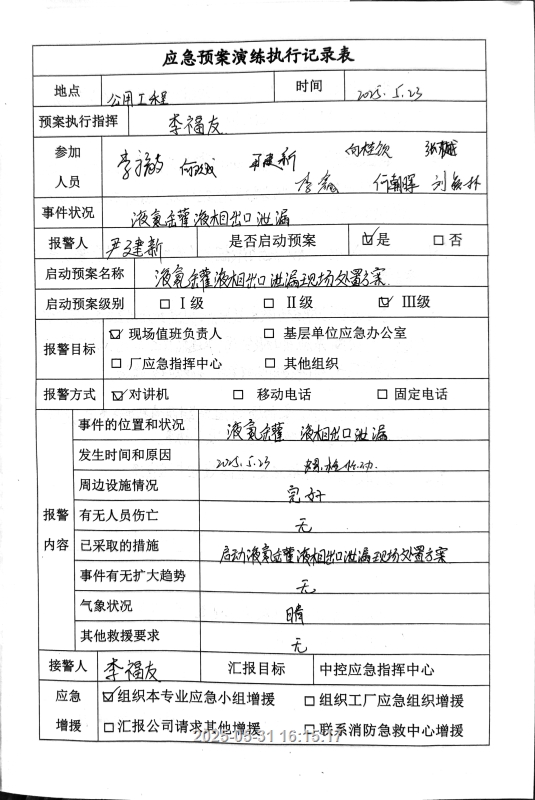 应急预案演练执行记录表
地点 公用工程 时间 2025.5.23
预案执行指挥 李福友
参加
人员
事件状况 液氨金罐液相出口泄漏
报警人 尹建新 是否启动预案 ☑是 □否
启动预案名称 液氨金罐液相出口泄漏现场处置方案
启动预案级别 □ Ⅰ级 □ Ⅱ级 ☑ Ⅲ级
报警目标 ☑ 现场值班负责人 □ 基层单位应急办公室
□ 厂应急指挥中心 □ 其他组织
报警方式 ☑对讲机 □ 移动电话 □ 固定电话
报警
内容
事件的位置和状况 液氨金罐 液相出口泄漏
发生时间和原因 2025.5.23 螺栓松动.
周边设施情况 完好
有无人员伤亡 无
已采取的措施 启动液氨金罐液相出口泄漏现场处置方案
事件有无扩大趋势 无
气象状况 晴
其他救援要求 无
接警人 李福友 汇报目标 中控应急指挥中心
应急
增援
☑组织本专业应急小组增援 □组织工厂应急组织增援
□汇报公司请求其他增援 □联系消防急救中心增援
2025-05-31 16:15:17